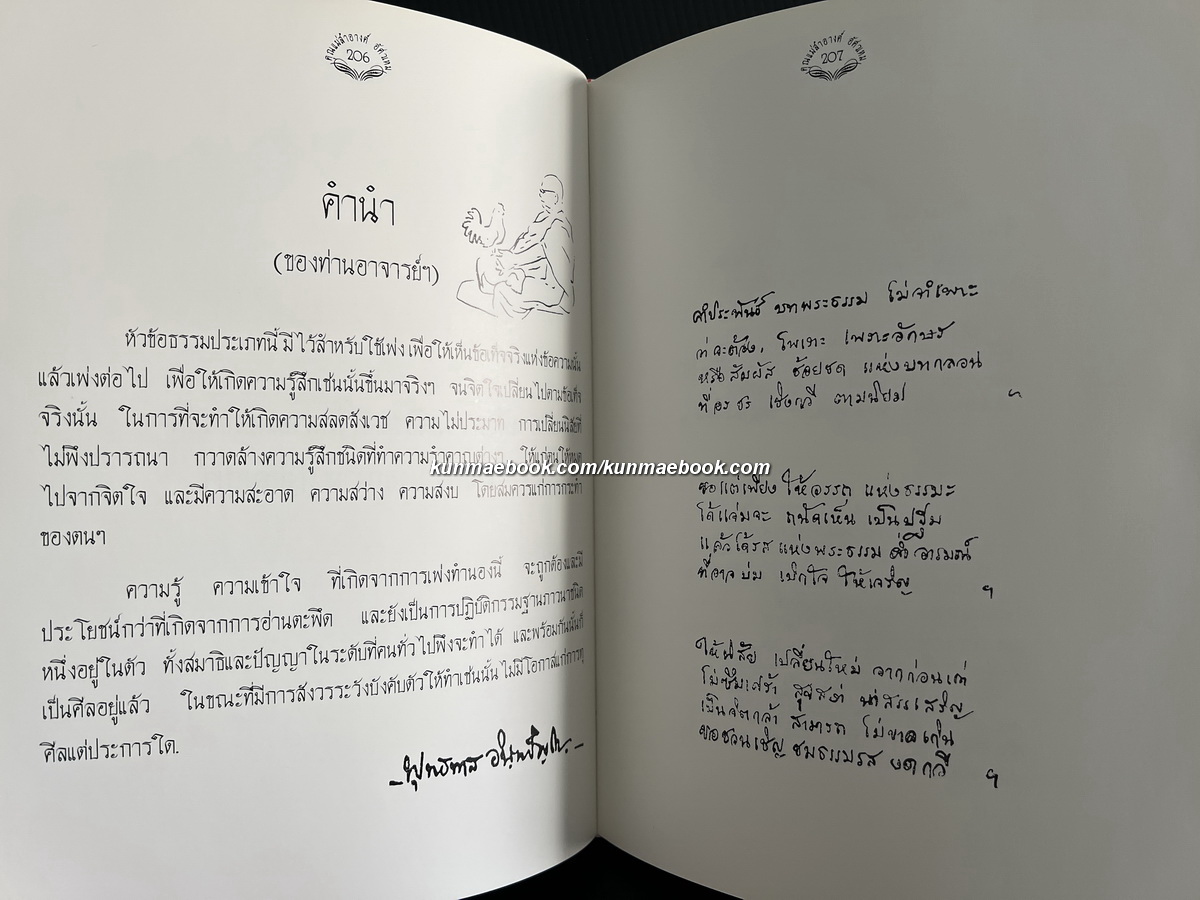 คุณแม่สำอางค์ อัศวเทม
206
คำนำ
(ของท่านอาจารย์ฯ)
หัวข้อธรรมประเภทนี้ มีไว้สำหรับใช้เพ่ง เพื่อให้เห็นข้อเท็จจริงแห่งข้อความนั้น
แล้วเพ่งต่อไป เพื่อให้เกิดความรู้สึกเช่นนั้นขึ้นมาจริงๆ จนจิตใจเปลี่ยนไปตามข้อเท็จ
จริงนั้น ในการที่จะทำให้เกิดความสลดสังเวช ความไม่ประมาท การเปลี่ยนนิสัยที่
ไม่พึงปรารถนา กวาดล้างความรู้สึกชนิดที่ทำความรำคาญต่างๆ ให้แก่ตนให้หมด
ไปจากจิตใจ และมีความสะอาด ความสว่าง ความสงบ โดยสมควรแก่การกระทำ
ของตนๆ
ความรู้ ความเข้าใจ ที่เกิดจากการเพ่งทำนองนี้ จะถูกต้องและมี
ประโยชน์กว่าที่เกิดจากการอ่านตะพึด และยังเป็นการปฏิบัติกรรมฐานภาวนาชนิด
หนึ่งอยู่ในตัว ทั้งสมาธิและปัญญาในระดับที่คนทั่วไปพึงจะทำได้ และพร้อมกันนั้นก็
เป็นศีลอยู่แล้ว ในขณะที่มีการสังวรระวังบังคับตัวให้ทำเช่นนั้น ไม่มีโอกาสแก่การทุ
ศีลแต่ประการใด.
– พุทธทาส อินฺทปญฺโญ. –
คุณแม่สำอางค์ อัศวเทม
207
คำประพันธ์ บทพระธรรม ไม่จำเพาะ
ว่าจะต้อง, ไพเราะ เพราะอักษร
หรือสัมผัส ช้อยชด แห่งบทกลอน
ที่อรชร เชิงกวี ตามนิยม ฯ
ขอแต่เพียง ให้อรรถ แห่งธรรมะ
ได้แจ่มจะ ถนัดเห็น เป็นปฐม
แล้วได้รส แห่งพระธรรม ด่ำอารมณ์
ที่อาจบ่ม เบิกใจ ให้เจริญ ฯ
ให้นิสัย เปลี่ยนใหม่ จากก่อนเก่า
ไม่ซึมเศร้า สุขสง่า น่าสรรเสริญ
เป็นจิตกล้า สามารถ ไม่ขาดเกิน
ขอชวนเชิญ ชมธรรมรส งดกวี ฯ
kunmaebook.com/kunmaebook.com